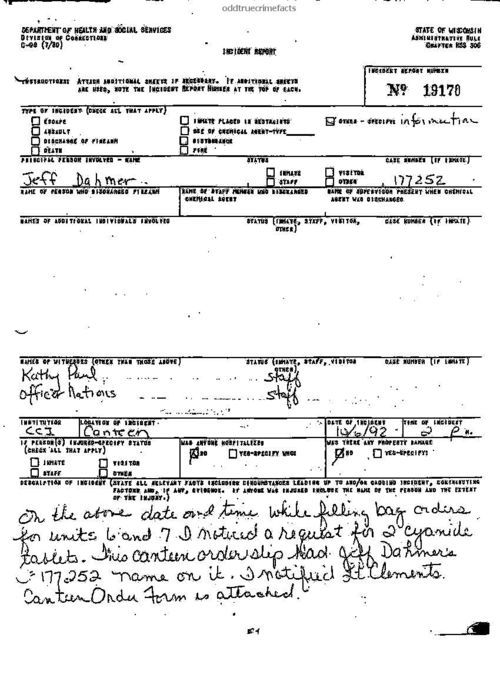 oddtruecrimefacts
DEPARTMENT OF HEALTH AND SOCIAL SERVICES
DIVISION OF CORRECTIONS
C-98 (7/80)
STATE OF WISCONSIN
ADMINISTRATIVE RULE
CHAPTER HSS 306
INCIDENT REPORT
INSTRUCTIONS: ATTACH ADDITIONAL SHEETS IF NECESSARY. IF ADDITIONAL SHEETS
ARE USED, NOTE THE INCIDENT REPORT NUMBER AT THE TOP OF EACH.
INCIDENT REPORT NUMBER
Nº 19170
TYPE OF INCIDENT (CHECK ALL THAT APPLY)
ESCAPE
ASSAULT
DISCHARGE OF FIREARM
DEATH
INMATE PLACED IN RESTRAINTS
USE OF CHEMICAL AGENT-TYPE
DISTURBANCE
FIRE
OTHER - SPECIFY: information
PRINCIPAL PERSON INVOLVED - NAME
STATUS
CASE NUMBER (IF INMATE)
Jeff Dahmer
INMATE
STAFF
VISITOR
OTHER
177252
NAME OF PERSON WHO DISCHARGED FIREARM
NAME OF STAFF MEMBER WHO DISCHARGED
CHEMICAL AGENT
NAME OF SUPERVISOR PRESENT WHEN CHEMICAL
AGENT WAS DISCHARGED
NAMES OF ADDITIONAL INDIVIDUALS INVOLVED
STATUS (INMATE, STAFF, VISITOR,
OTHER)
CASE NUMBER (IF INMATE)
NAMES OF WITNESSES (OTHER THAN THOSE ABOVE)
STATUS (INMATE, STAFF, VISITOR
OTHER)
CASE NUMBER (IF INMATE)
Kathy Paul staff
Officer Nations staff
INSTITUTION
CCI
LOCATION OF INCIDENT
Canteen
DATE OF INCIDENT
10/6/92
TIME OF INCIDENT
2 P M.
IF PERSON(S) INJURED-SPECIFY STATUS
(CHECK ALL THAT APPLY)
INMATE
VISITOR
STAFF
OTHER
WAS ANYONE HOSPITALIZED
NO
YES-SPECIFY WHOM
WAS THERE ANY PROPERTY DAMAGE
NO
YES-SPECIFY:
DESCRIPTION OF INCIDENT (STATE ALL RELEVANT FACTS INCLUDING CIRCUMSTANCES LEADING UP TO AND/OR CAUSING INCIDENT, CONTRIBUTING
FACTORS AND, IF ANY, EVIDENCE. IF ANYONE WAS INJURED INCLUDE THE NAME OF THE PERSON AND THE EXTENT
OF THE INJURY.)
On the above date and time while filling bag orders
for units 6 and 7 I noticed a request for 2 cyanide
tablets. This canteen order slip had Jeff Dahmer's
177252 name on it. I notified Lt Clements.
Canteen Order Form is attached.